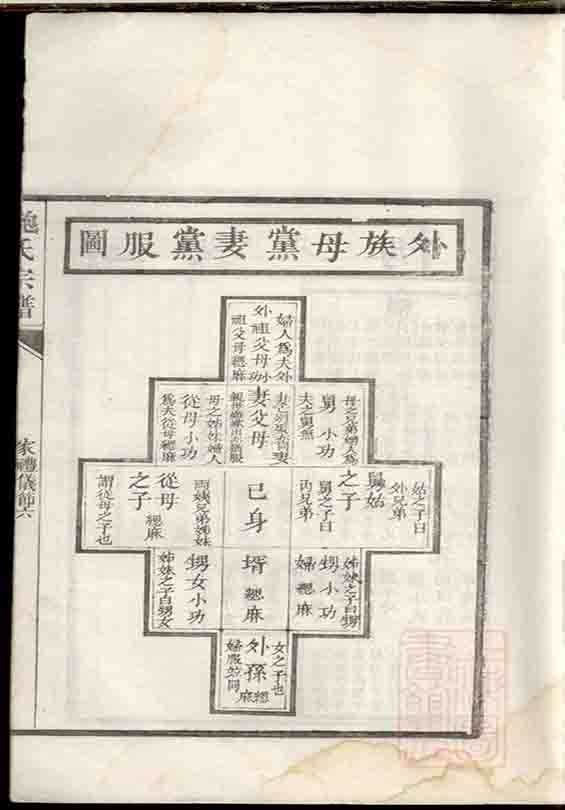 外族母黨妻黨服圖
婦人為夫外
外祖父母小功
祖父母緦麻
母之兄弟婦人為
舅小功
夫之舅緦
妻父母
母之姊妹婦人
從母小功
為夫從母緦麻
姑之子曰
外兄弟
舅姑
之子
舅之子曰
內兄弟
己身
兩姨兄弟姊妹
從母
之子
緦麻
謂從母之子也
姊妹之子曰甥
甥小功
婦緦麻
壻緦麻
甥女小功
姊妹之子曰甥女
女之子也
外孫緦麻
婦服並同
鮑氏宗譜
家禮儀節六